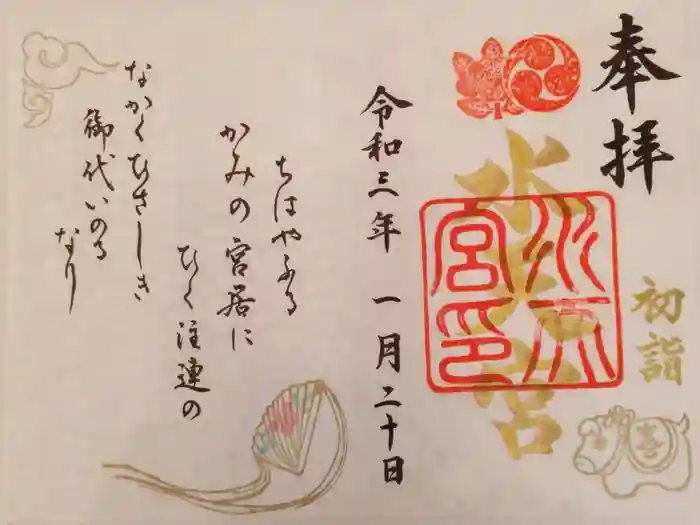 奉拝
初詣
水天宮
水天宮印
令和三年 一月二十日
ちはやふる
かみの宮居に
ひく注連の
なかくひさしき
御代いのる
なり